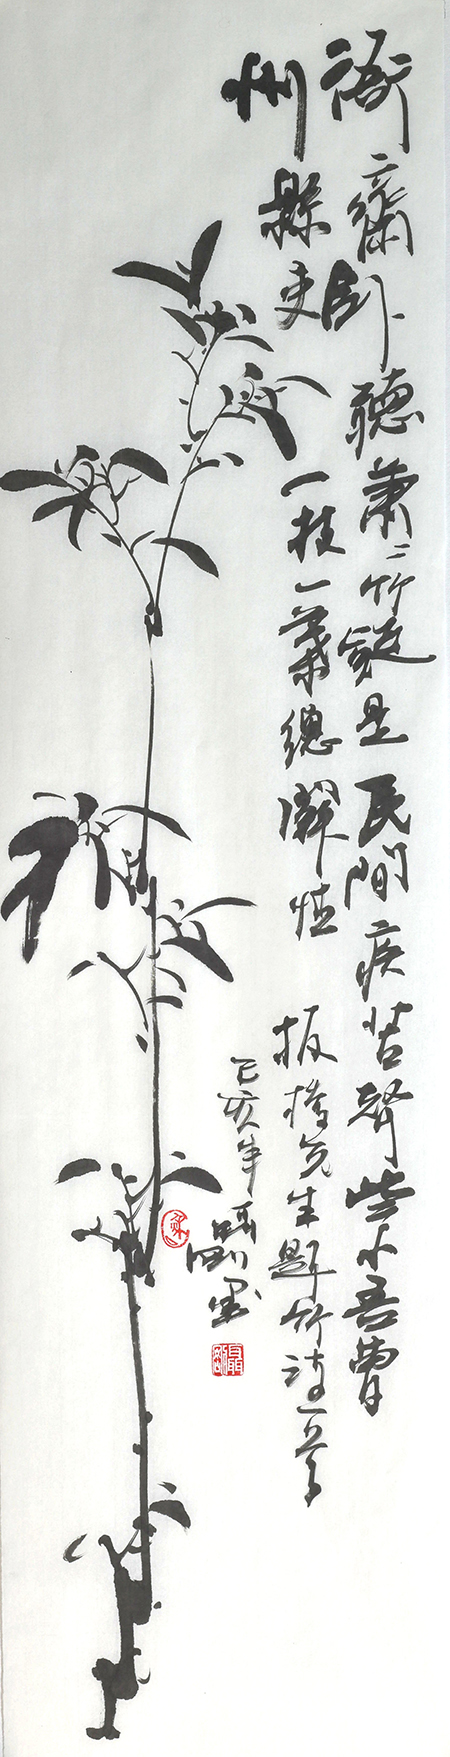 衙齋臥聽蕭〻竹疑是民間疾苦聲些小吾曹
州縣吏一枝一葉總關情 板橋先生題竹詩一首
己亥年